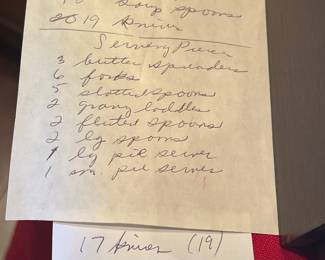 soup spoons
20 19 knives
Serving Pieces
3 butter spreaders
6 forks
5 slotted spoons
2 gravy laddles
2 fluted spoons
2 lg spoons
1 lg pie server
1 sm pie server
17 knives (19)